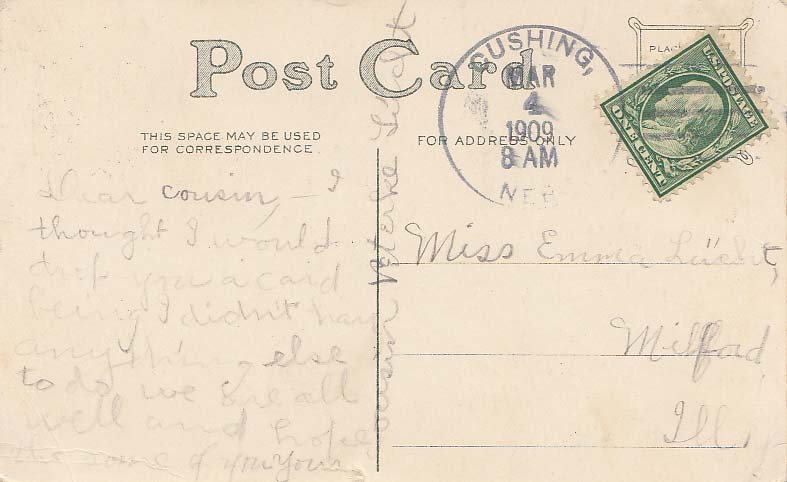 Post Card
THIS SPACE MAY BE USED
FOR CORRESPONDENCE.
FOR ADDRESS ONLY
CUSHING,
MAR
4
1909
8 AM
NEB
PLAC
U.S. POSTAGE
ONE CENT
Dear cousin, — I
thought I would
drop you a card
being I didn't have
anything else
to do we are all
well and hope
the same of you Your
cousin
Miss Emma Lücht,
Milford
Ill.